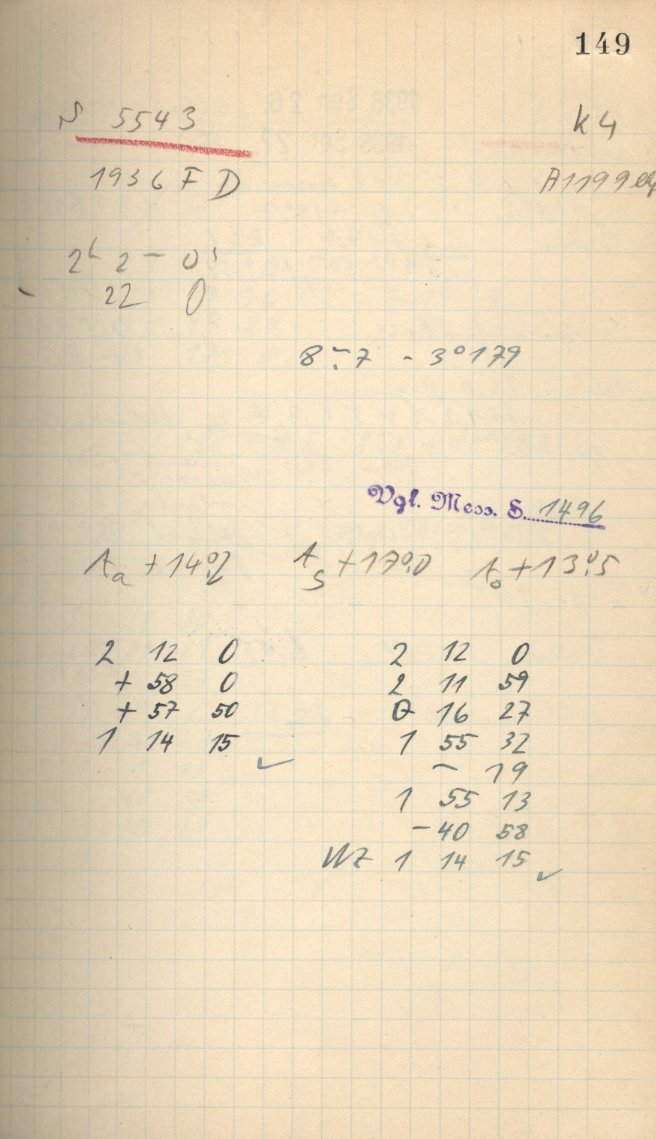 149
S 5543 K4
1936 F D A1199
2h 2m 0s
22 0
8m.7 - 3°179
Vgl. Mess. S. 1496
Aa +14°.2 AS +17°.0 Ao +13°.5
2 12 0 2 12 0
+ 58 0 2 11 59
+ 57 50 0 16 27
1 14 15 1 55 32
- 19
1 55 13
-40 58
WZ 1 14 15